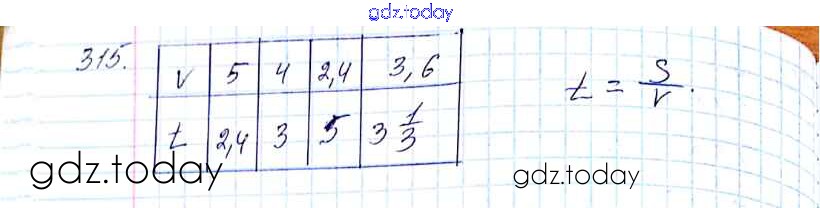 gdz.today
315.
v 5 4 2,4 3,6
t 2,4 3 5 3 1/3
t = S/v.
gdz.today
gdz.today